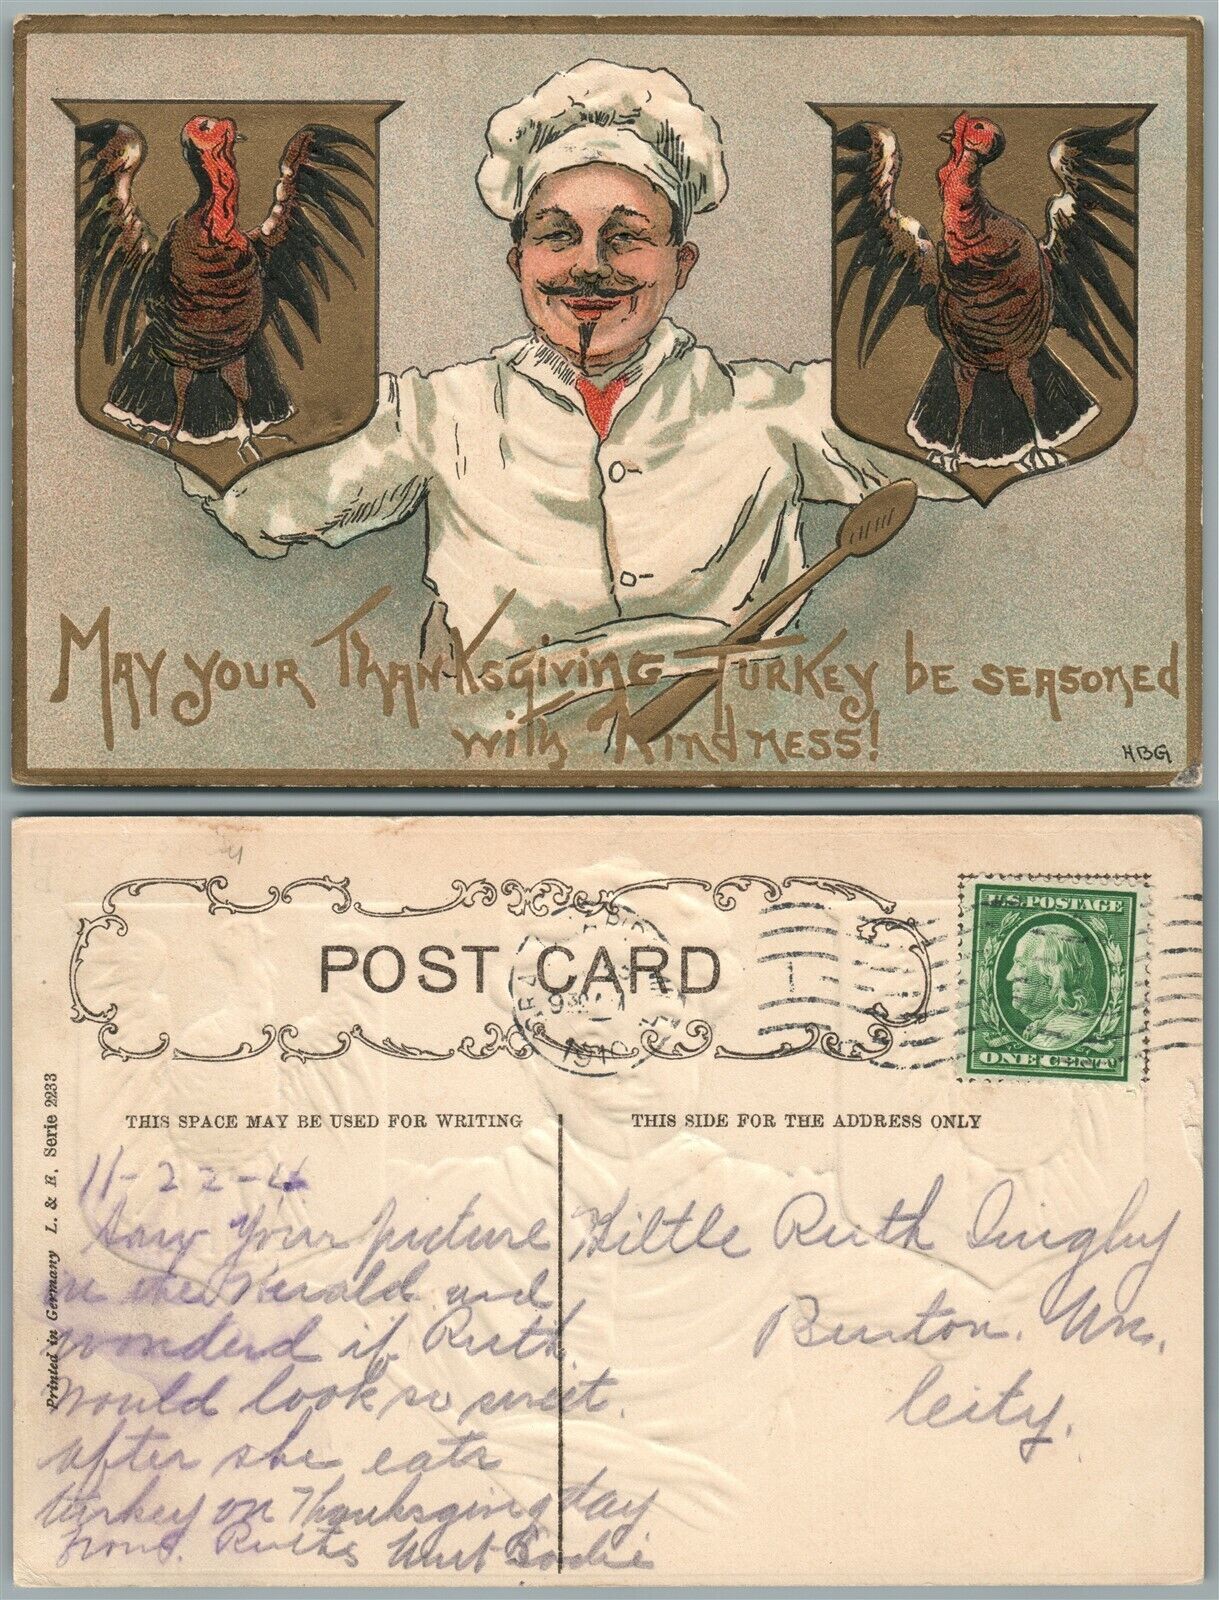 MAY YOUR THANKSGIVING TURKEY BE SEASONED
WITH KINDNESS!
HBG
POST CARD
U.S. POSTAGE
ONE CENT
9 30
1910
THIS SPACE MAY BE USED FOR WRITING
THIS SIDE FOR THE ADDRESS ONLY
Printed in Germany L. & E. Serie 2233
11-22-
Saw Your picture
in the Herald and
wonderd if Ruth
would look so sweet
after she eats
turkey on Thanksgiving day
from Ruths Aunt
Ruth
Benton
City.